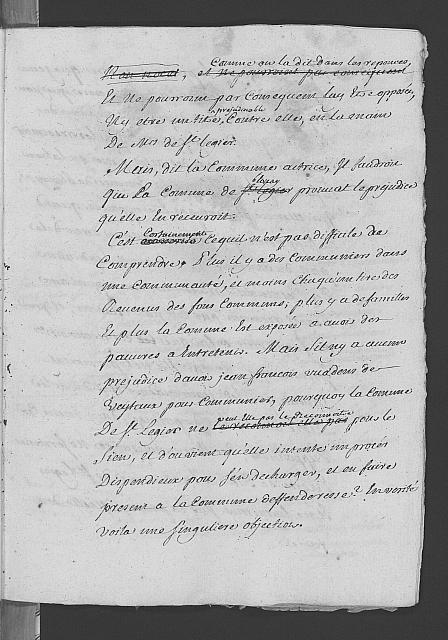 Comme on la dit dans les reponces,
et ne pourroint par consequend
Et Ne pourroint par Consequent luy Etre opposés,
Ny etre un titre prejudiciable Contre elle, en la main
De Mrs de St Legier.
Mais, dit la Commune actrice, Il faudroit
que La Commune de St Legier prouvat le prejudice
qu'elle en recevroit.
C'est Certainement Ce qui n'est pas difficile de
Comprendre. Plus il y a des Communiers dans
une Communauté, et moins chaqu'un tire des
Revenus des fons Communs; plus y a de familles
Et plus la Comune Est exposée a avoir des
pauvres a Entretenir. Mais S'il n'y a aucun
prejudice d'avoir jean françois
Veytaux pour Communier, pourquoy la Comune
De St Legier ne peut Elle pas le Reconnoitre pour le
Sien, et d'ou vient qu'elle intente un procès
Dispendieux pour s'en decharger, et en faire
present a la Commune deffenderesse? En verité
voila une Singuliere objection.